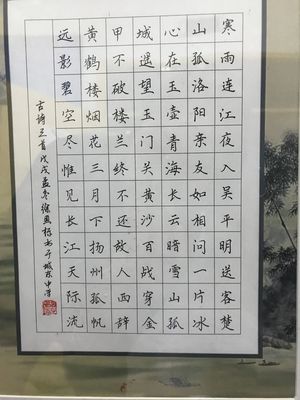 寒雨连江夜入吴平明送客楚
山孤洛阳亲友如相问一片冰
心在玉壶青海长云暗雪山孤
城遥望玉门关黄沙百战穿金
甲不破楼兰终不还故人西辞
黄鹤楼烟花三月下扬州孤帆
远影碧空尽惟见长江天际流
古诗三首戊戌孟冬徐书于城东中学